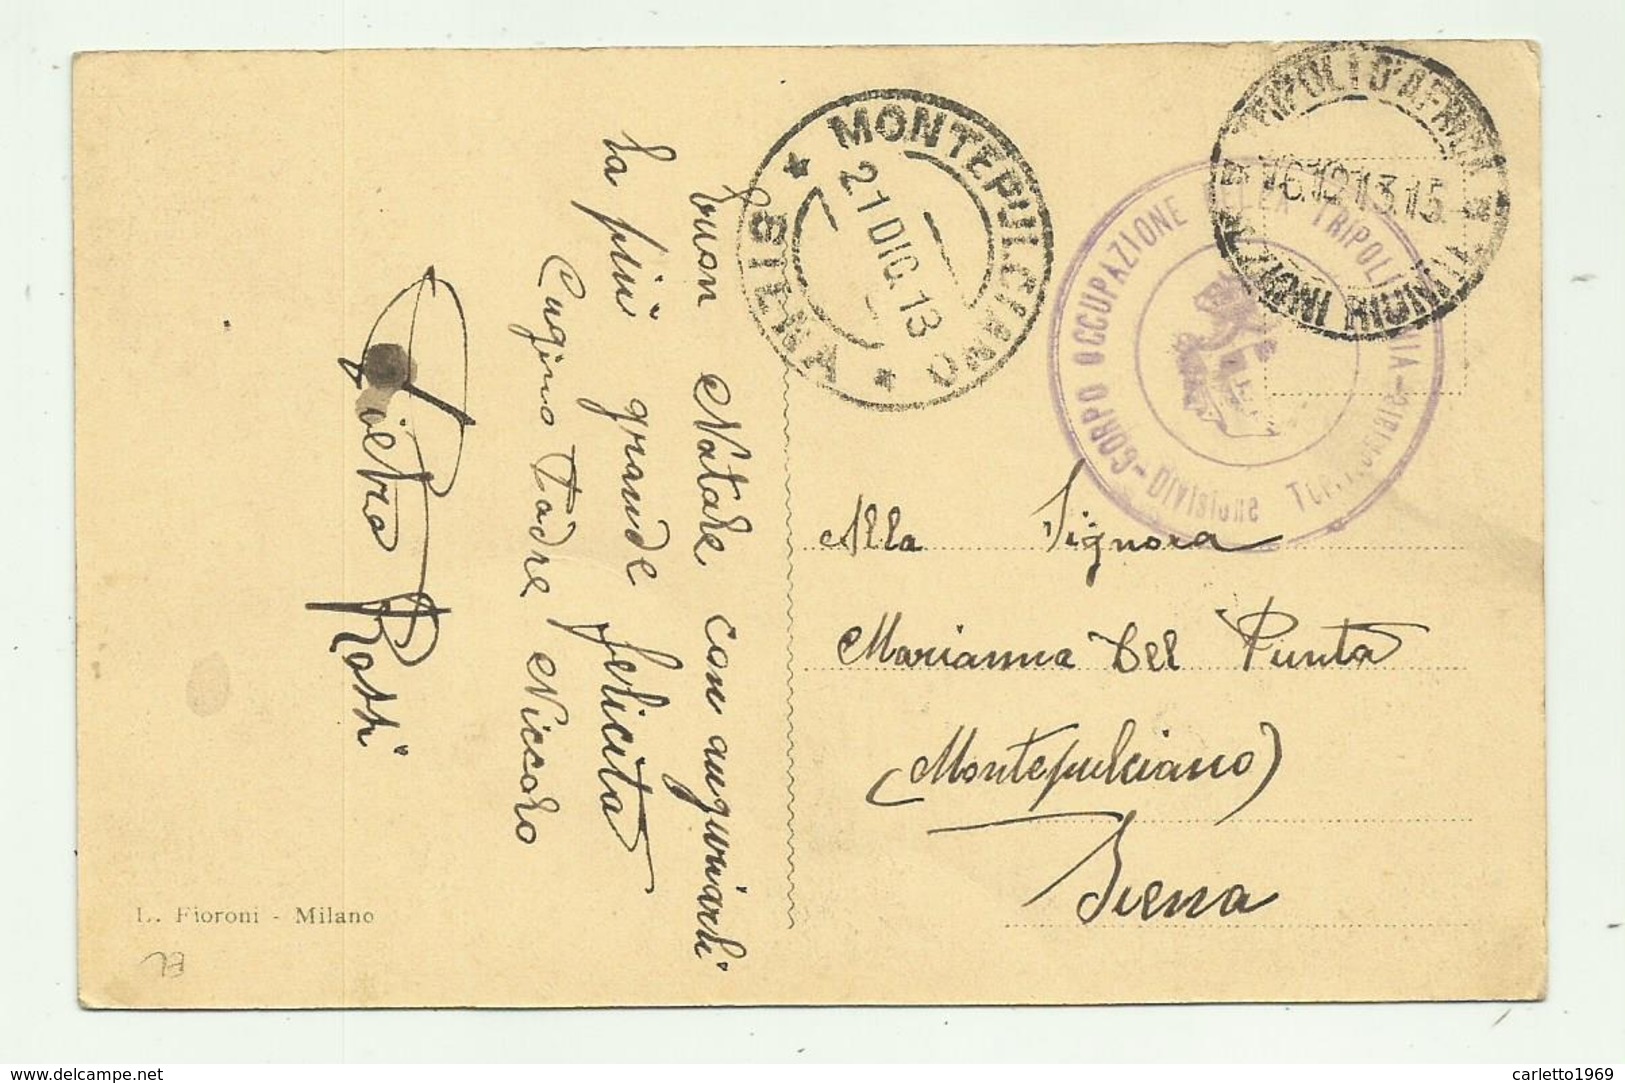 buon Natale con auguriarli
la più grande felicità
Cugino Padre Niccolo
Pietro Rossi
L. Fioroni - Milano
MONTEPULCIANO
* SIENA *
21 DIC. 13
CORPO OCCUPAZIONE DELLA TRIPOLITANIA
Divisione
TRIPOLI D'AFRICA
16.12.13.15
Alla Signora
Marianna Del Punta
(Montepulciano)
Siena
delcampe.net
carletto1969